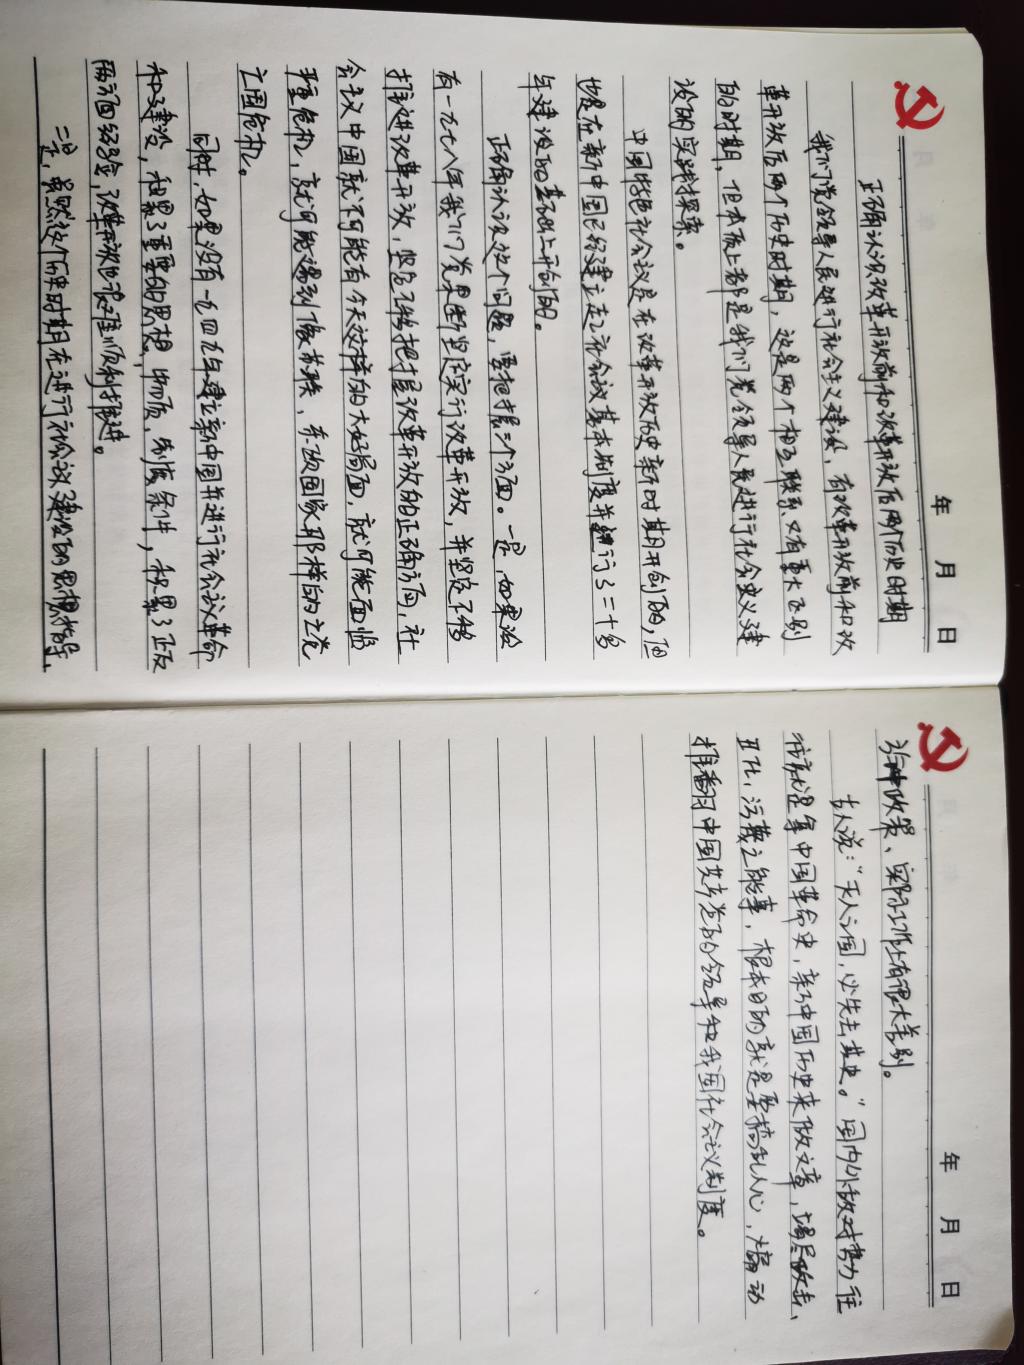 年 月 日
正确认识改革开放前和改革开放后两个历史时期
我们党领导人民进行社会主义建设，有改革开放前和改
革开放后两个历史时期，这是两个相互联系又有重大区别
的时期，但本质上都是我们党领导人民进行社会主义建
设的实践探索。
中国特色社会主义是在改革开放历史新时期开创的，但
也是在新中国已经建立起社会主义基本制度并进行了二十多
年建设的基础上开创的。
正确认识这个问题，要把握三个方面。一是，如果没
有一九七八年我们党果断坚定实行改革开放，并坚定不移
推进改革开放，坚定不移把握改革开放的正确方向，社
会主义中国就不可能有今天这样的大好局面，就可能面临
严重危机，就可能遇到像苏联、东欧国家那样的亡党
亡国危机。
同时，如果没有一九四九年建立新中国并进行社会主义革命
和建设，积累了重要的思想、物质、制度条件，积累了正反
两方面经验，改革开放也很难顺利推进。
二是，虽然这个历史时期在进行社会主义建设的思想指导、
年 月 日
方针政策、实际工作上有很大差别。
古人说：“灭人之国，必先去其史。”国内外敌对势力往
往就是拿中国革命史、新中国历史来做文章，竭尽攻击、
丑化、污蔑之能事，根本目的就是要搞乱人心，煽动
推翻中国共产党的领导和我国社会主义制度。